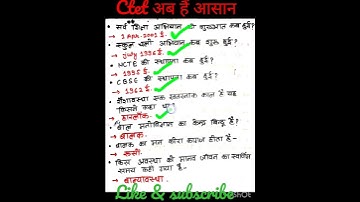 Ctet अब हैं आसान
• सर्व शिक्षा अभियान की शुरुआत कब हुई?
→ 1 Apr. 2001 ई.
• स्कूल चलो अभियान कब शुरू हुई?
→ july 1996 ई.
• NCTE की स्थापना कब हुई?
→ 1995 ई.
• CBSE की स्थापना कब हुई?
→ 1962 ई.
• शैशवावस्था एक खतरनाक काल है यह
किसने कहा था?
→ हरलॉक.
• बाल मनोविज्ञान का केन्द्र बिन्दु है?
→ बालक.
• बालक का मन कोरा कागज होता है-
→ रूसो.
• किस अवस्था को मानव जीवन का स्वर्णिम
समय कहा गया है-
→ बाल्यावस्था.
Like & subscribe